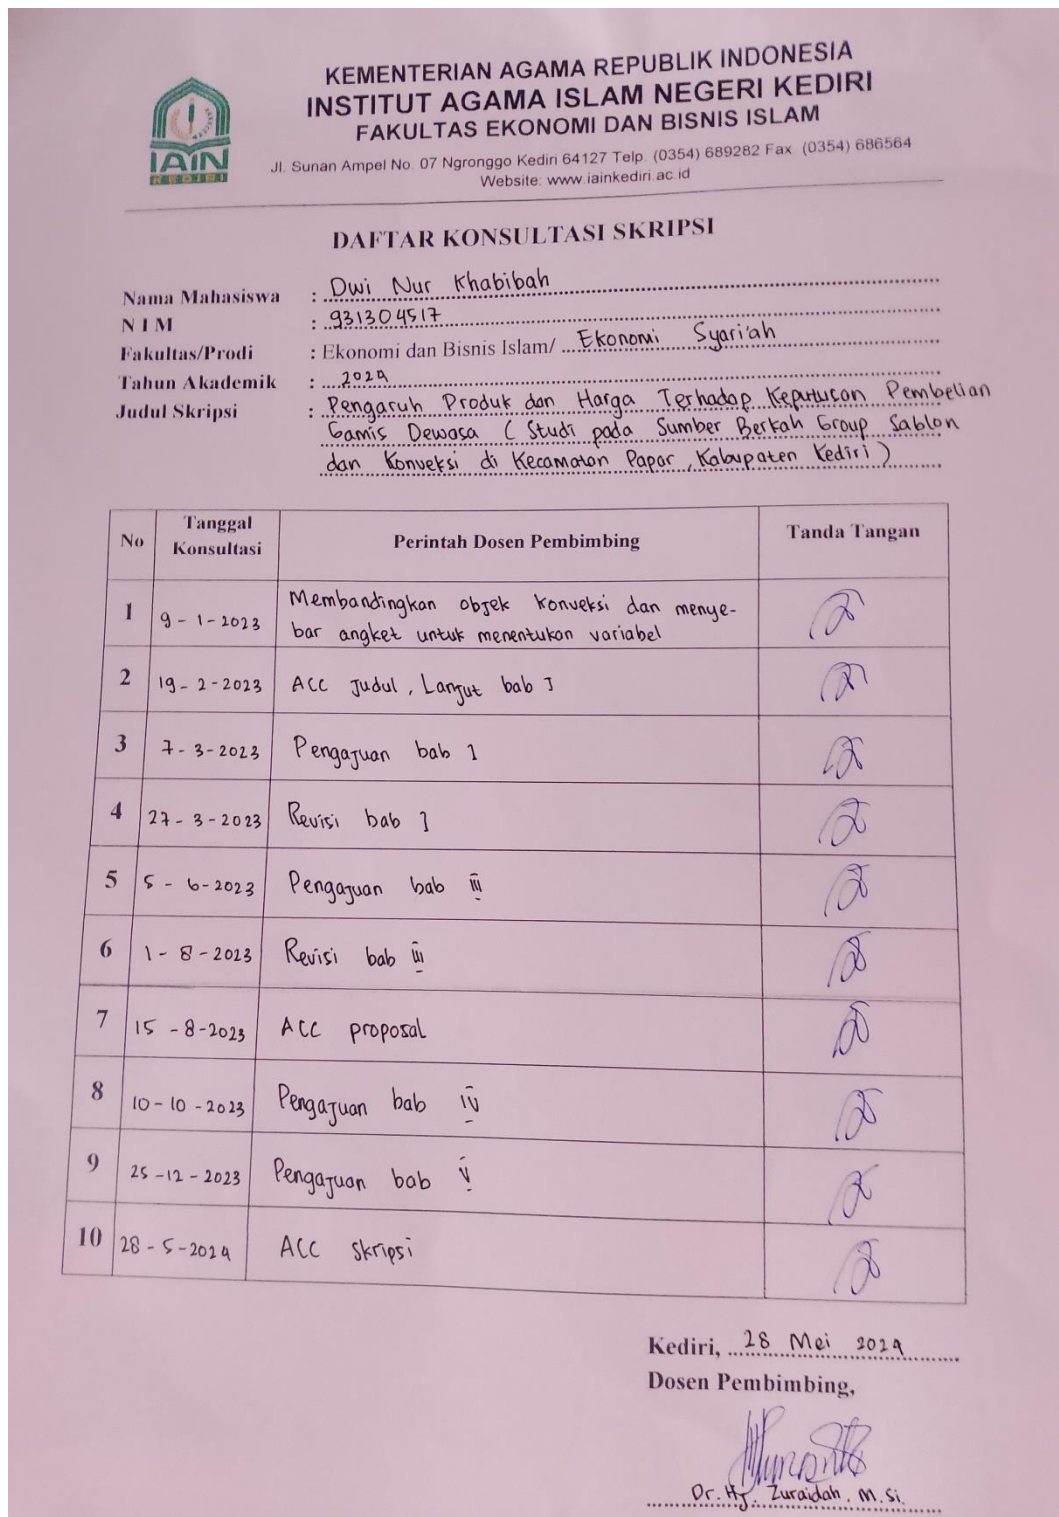 KEMENTERIAN AGAMA REPUBLIK INDONESIA
INSTITUT AGAMA ISLAM NEGERI KEDIRI
FAKULTAS EKONOMI DAN BISNIS ISLAM
Jl. Sunan Ampel No. 07 Ngronggo Kediri 64127 Telp. (0354) 689282 Fax. (0354) 686564
Website: www.iainkediri.ac.id
IAIN
KEDIRI
DAFTAR KONSULTASI SKRIPSI
Nama Mahasiswa : Dwi Nur Khabibah
NIM : 931304517
Fakultas/Prodi : Ekonomi dan Bisnis Islam/ Ekonomi Syari'ah
Tahun Akademik : 2024
Judul Skripsi : Pengaruh Produk dan Harga Terhadap Keputusan Pembelian
Gamis Dewasa ( Studi pada Sumber Berkah Group Sablon
dan Konveksi di Kecamatan Papar, Kabupaten Kediri )
No Tanggal Konsultasi Perintah Dosen Pembimbing Tanda Tangan
1 9-1-2023 Membandingkan objek konveksi dan menye-
bar angket untuk menentukan variabel
2 19-2-2023 ACC Judul, Lanjut bab I
3 7-3-2023 Pengajuan bab I
4 27-3-2023 Revisi bab I
5 5-6-2023 Pengajuan bab iii
6 1-8-2023 Revisi bab iii
7 15-8-2023 ACC proposal
8 10-10-2023 Pengajuan bab iv
9 25-12-2023 Pengajuan bab v
10 28-5-2024 ACC Skripsi
Kediri, 28 Mei 2024
Dosen Pembimbing,
Dr. Hj. Zuraidah, M.Si.